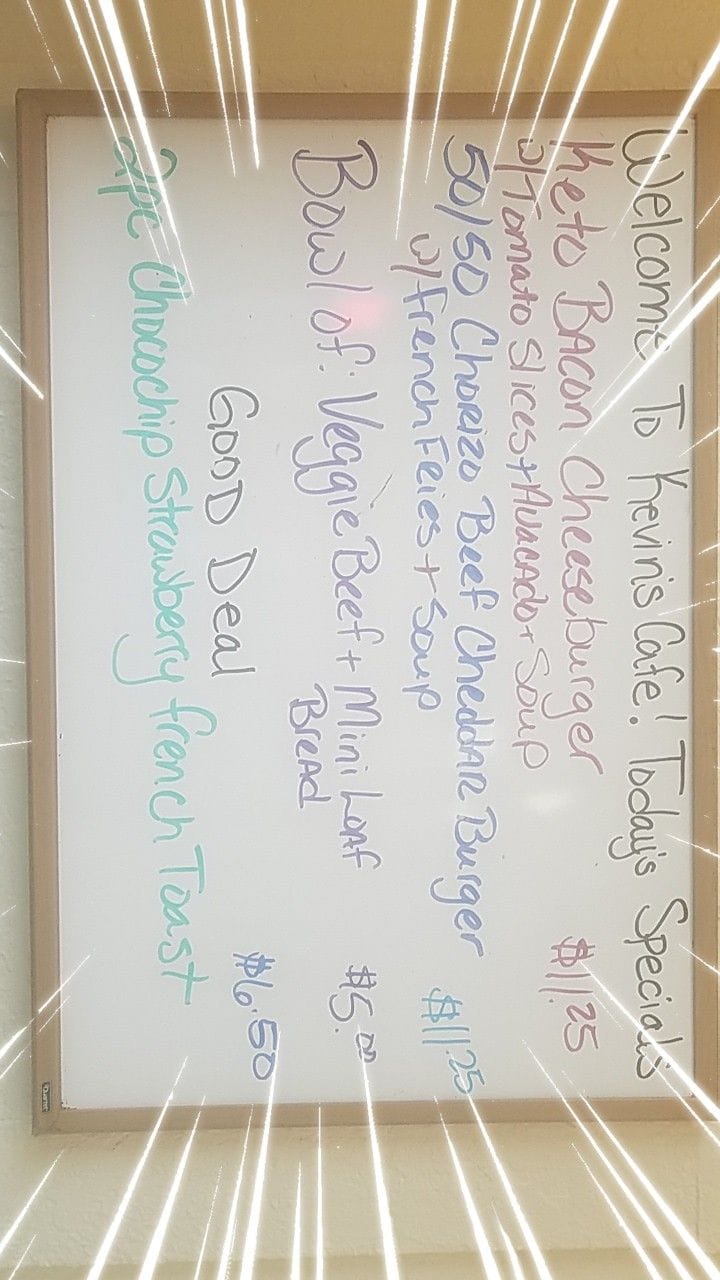 Welcome To Kevin's Cafe! Today's Special's
Keto Bacon Cheeseburger $11.25
w/Tomato Slices + Avacado + Soup
50/50 Chorizo Beef Cheddar Burger $11.25
w/french Feies + Soup
Bowl of: Veggie Beef + Mini Loaf $5.00
Bread
Good Deal $6.50
2pc Chocochip Strawberry french Toast
Quartet